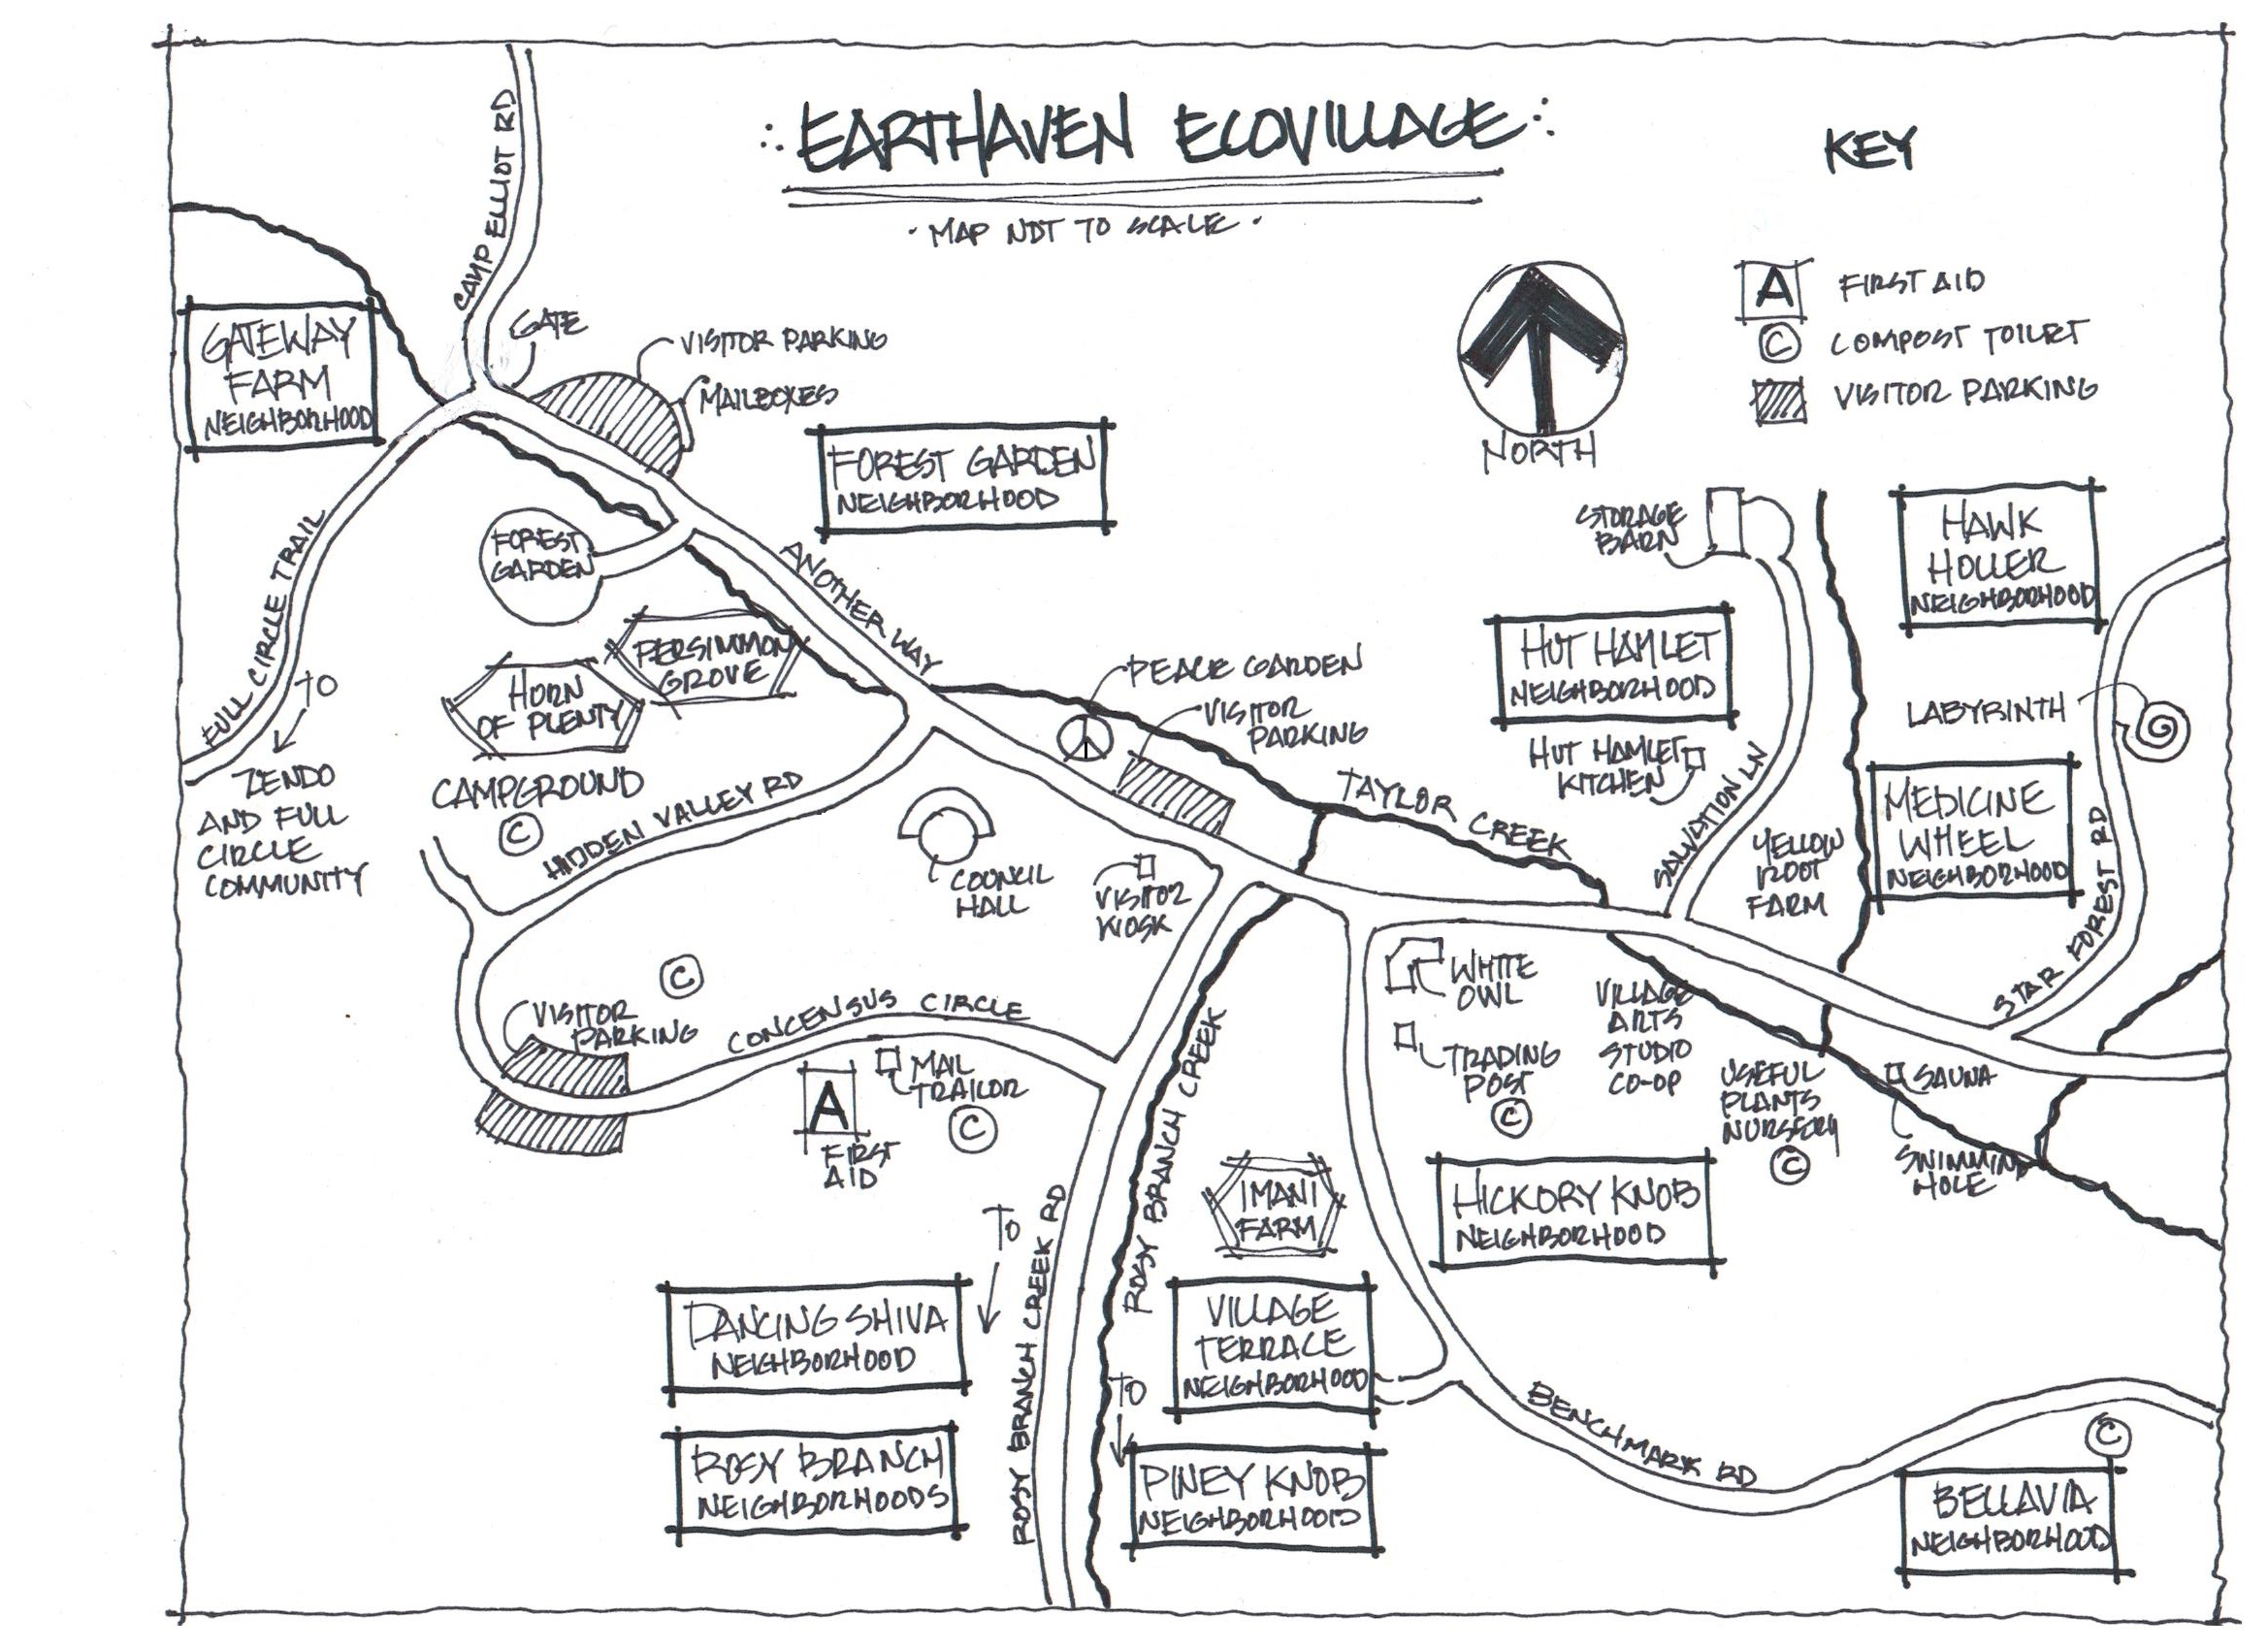 EARTHAVEN ECOVILLAGE
· MAP NOT TO SCALE ·
KEY
A FIRST AID
C COMPOST TOILET
VISITOR PARKING
NORTH
CAMP ELLIOT RD
GATE
VISITOR PARKING
MAILBOXES
GATEWAY
FARM
NEIGHBORHOOD
FOREST GARDEN
NEIGHBORHOOD
FULL CIRCLE TRAIL
TO
ZENDO
AND FULL
CIRCLE
COMMUNITY
FOREST
GARDEN
PERSIMMON
GROVE
HORN
OF PLENTY
CAMPGROUND
C
HIDDEN VALLEY RD
ANOTHER WAY
PEACE GARDEN
VISITOR
PARKING
TAYLOR CREEK
COUNCIL
HALL
VISITOR
KIOSK
STORAGE
BARN
HUT HAMLET
NEIGHBORHOOD
HUT HAMLET
KITCHEN
SALVATION LN
YELLOW
ROOT
FARM
HAWK
HOLLER
NEIGHBORHOOD
LABYRINTH
MEDICINE
WHEEL
NEIGHBORHOOD
STAR FOREST RD
C
VISITOR
PARKING
CONCENSUS CIRCLE
A
FIRST
AID
MAIL
TRAILOR
C
ROSY BRANCH CREEK
WHITE
OWL
TRADING
POST
C
VILLAGE
ARTS
STUDIO
CO-OP
USEFUL
PLANTS
NURSERY
C
SAUNA
SWIMMING
HOLE
IMANI
FARM
HICKORY KNOB
NEIGHBORHOOD
TO
DANCING SHIVA
NEIGHBORHOOD
ROSY BRANCH
NEIGHBORHOODS
ROSY BRANCH CREEK RD
VILLAGE
TERRACE
NEIGHBORHOOD
TO
PINEY KNOB
NEIGHBORHOOD
BENCHMARK RD
C
BELLAVIA
NEIGHBORHOOD